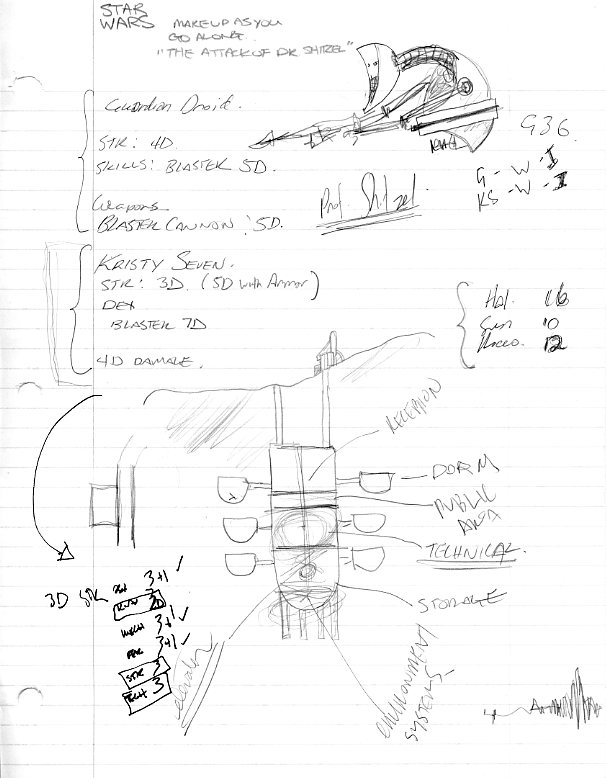 STAR
WARS
MAKEUP AS YOU
GO ALONG.
"THE ATTACK OF DR SHITZEL"
Guardian Droids.
STR: 4D.
SKILLS: BLASTER 5D.
Weapons
BLASTER CANNON: 5D.
Prof. Shitzel.
G36.
G - W - I
KS - W - I
KRISTY SEVEN.
STR: 3D. (5D with Armor)
DEX
BLASTER 7D
4D DAMAGE.
Hal. 16
10
12
RECEPTION
DORM
PUBLIC
AREA
TECHNICAL
STORAGE
ENVIRONMENT
SYSTEMS
3D STR
3+1 ✓
3
MECH 3+1 ✓
PER 3+1 ✓
STR 3
TECH 3